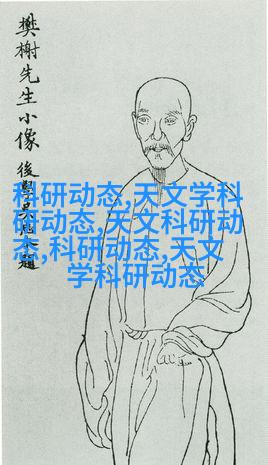 樊榭先生小像
後學
題
科研动态,天文学科
研动态,天文科研动
态,科研动态,天文
学科研动态